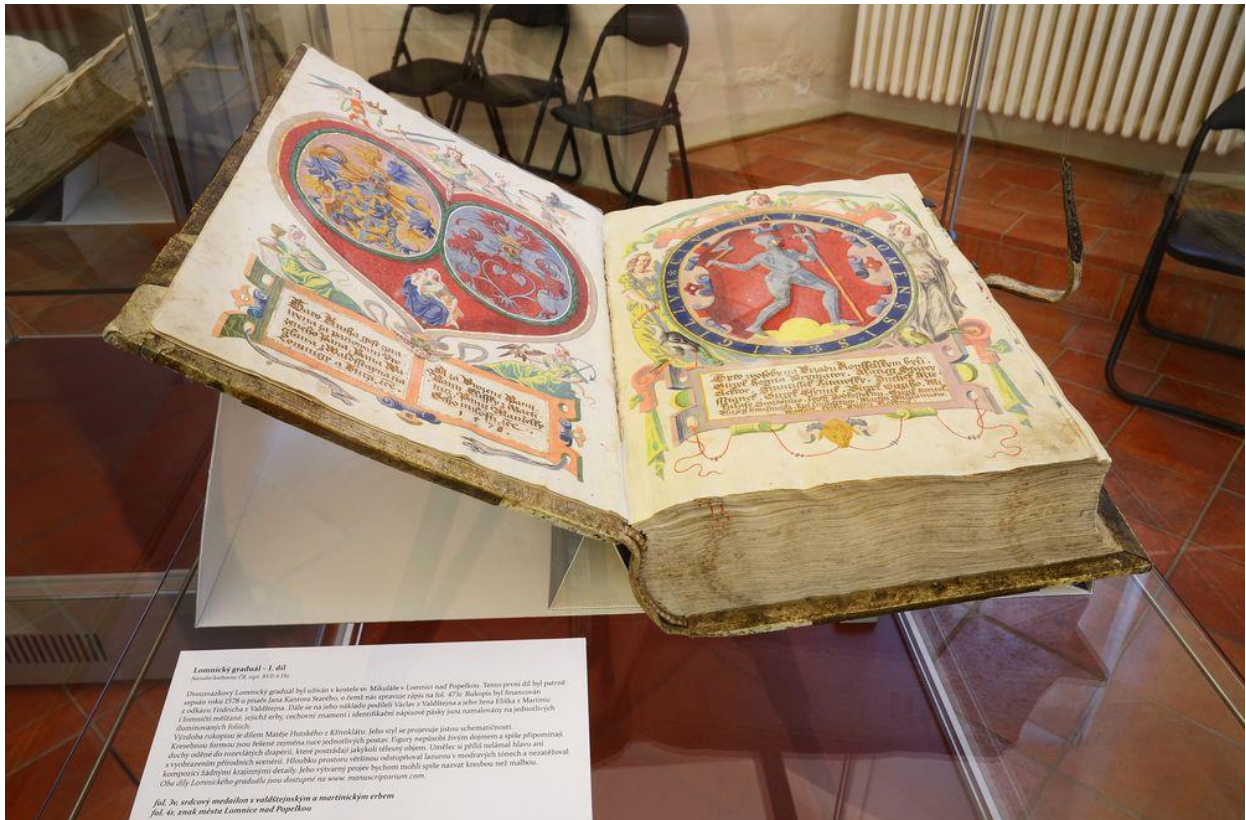 Tato Kniha gest
wena za panowani Uro
zeneho Pana Pana Wa
czlawa z Waldsstayna na
Lomniczy a
A za Urozene Panii
Panii Elissky z Marti
nicz Panii Manzielky
Geho milosti, etc.
1578.
SIGILLVM CIVITATIS LOMENSS
Lomnický graduál – I. díl
Národní knihovna ČR, sign. XVII A 53a
Dvousvazkový Lomnický graduál byl užíván v kostele sv. Mikuláše v Lomnici nad Popelkou. Tento první díl byl patrně
sepsán roku 1578 u písaře Jana Kantora Starého, o čemž nás zpravuje zápis na fol. 473r. Rukopis byl financován
z odkazu Fridricha z Valdštejna. Dále se na jeho nákladu podíleli Václav z Valdštejna a jeho žena Eliška z Martinic
i lomničtí měšťané, jejichž erby, cechovní znamení i identifikační nápisové pásky jsou namalovány na jednotlivých
iluminovaných foliích.
Výzdoba rukopisu je dílem Matěje Hutského z Křivoklátu. Jeho styl se projevuje jistou schematičností.
Kresebnou formou jsou řešené zejména ruce jednotlivých postav. Figury nepůsobí živým dojmem a spíše připomínají
duchy oděné do rozevlátých drapérií, které postrádají jakýkoli tělesný objem. Umělec si příliš nelámal hlavu ani
s vyobrazením přírodních scenérií. Hloubku prostoru většinou odstupňoval lazurou v modravých tónech a nezatěžoval
kompozici žádnými krajinnými detaily. Jeho výtvarný projev bychom mohli spíše nazvat kresbou než malbou.
Oba díly Lomnického graduálu jsou dostupné na www. manuscriptorium.com.
fol. 3v, srdcový medailon s valdštejnským a martinickým erbem
fol. 4r, znak města Lomnice nad Popelkou